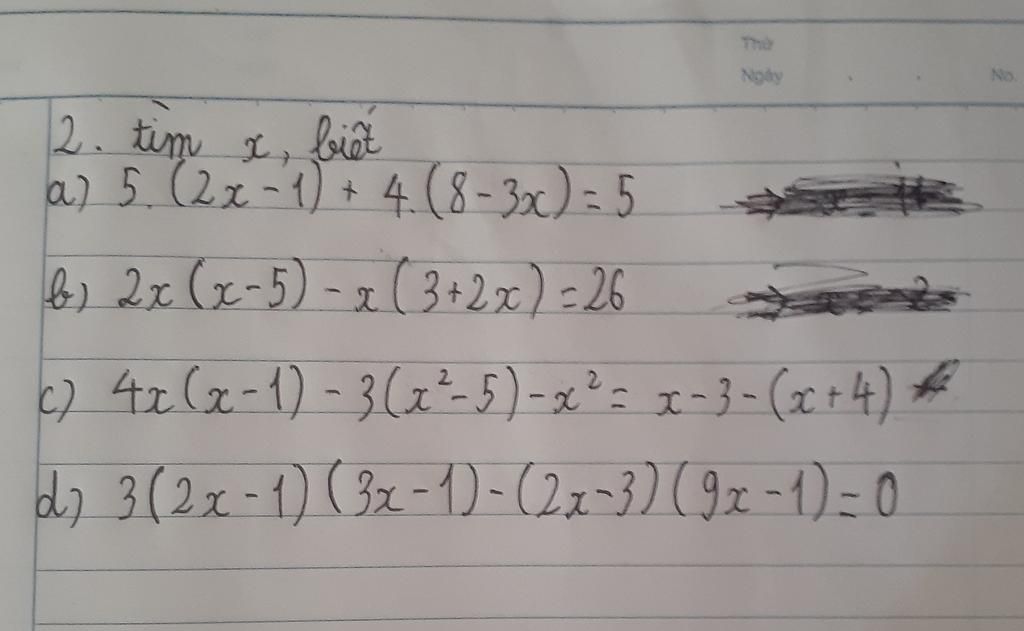 Thứ
Ngày . . No.
2. tìm x, biết
a) 5.(2x-1) + 4.(8-3x) = 5
b) 2x(x-5) - x(3+2x) = 26
c) 4x(x-1) - 3(x²-5) - x² = x-3-(x+4)
d) 3(2x-1)(3x-1) - (2x-3)(9x-1) = 0